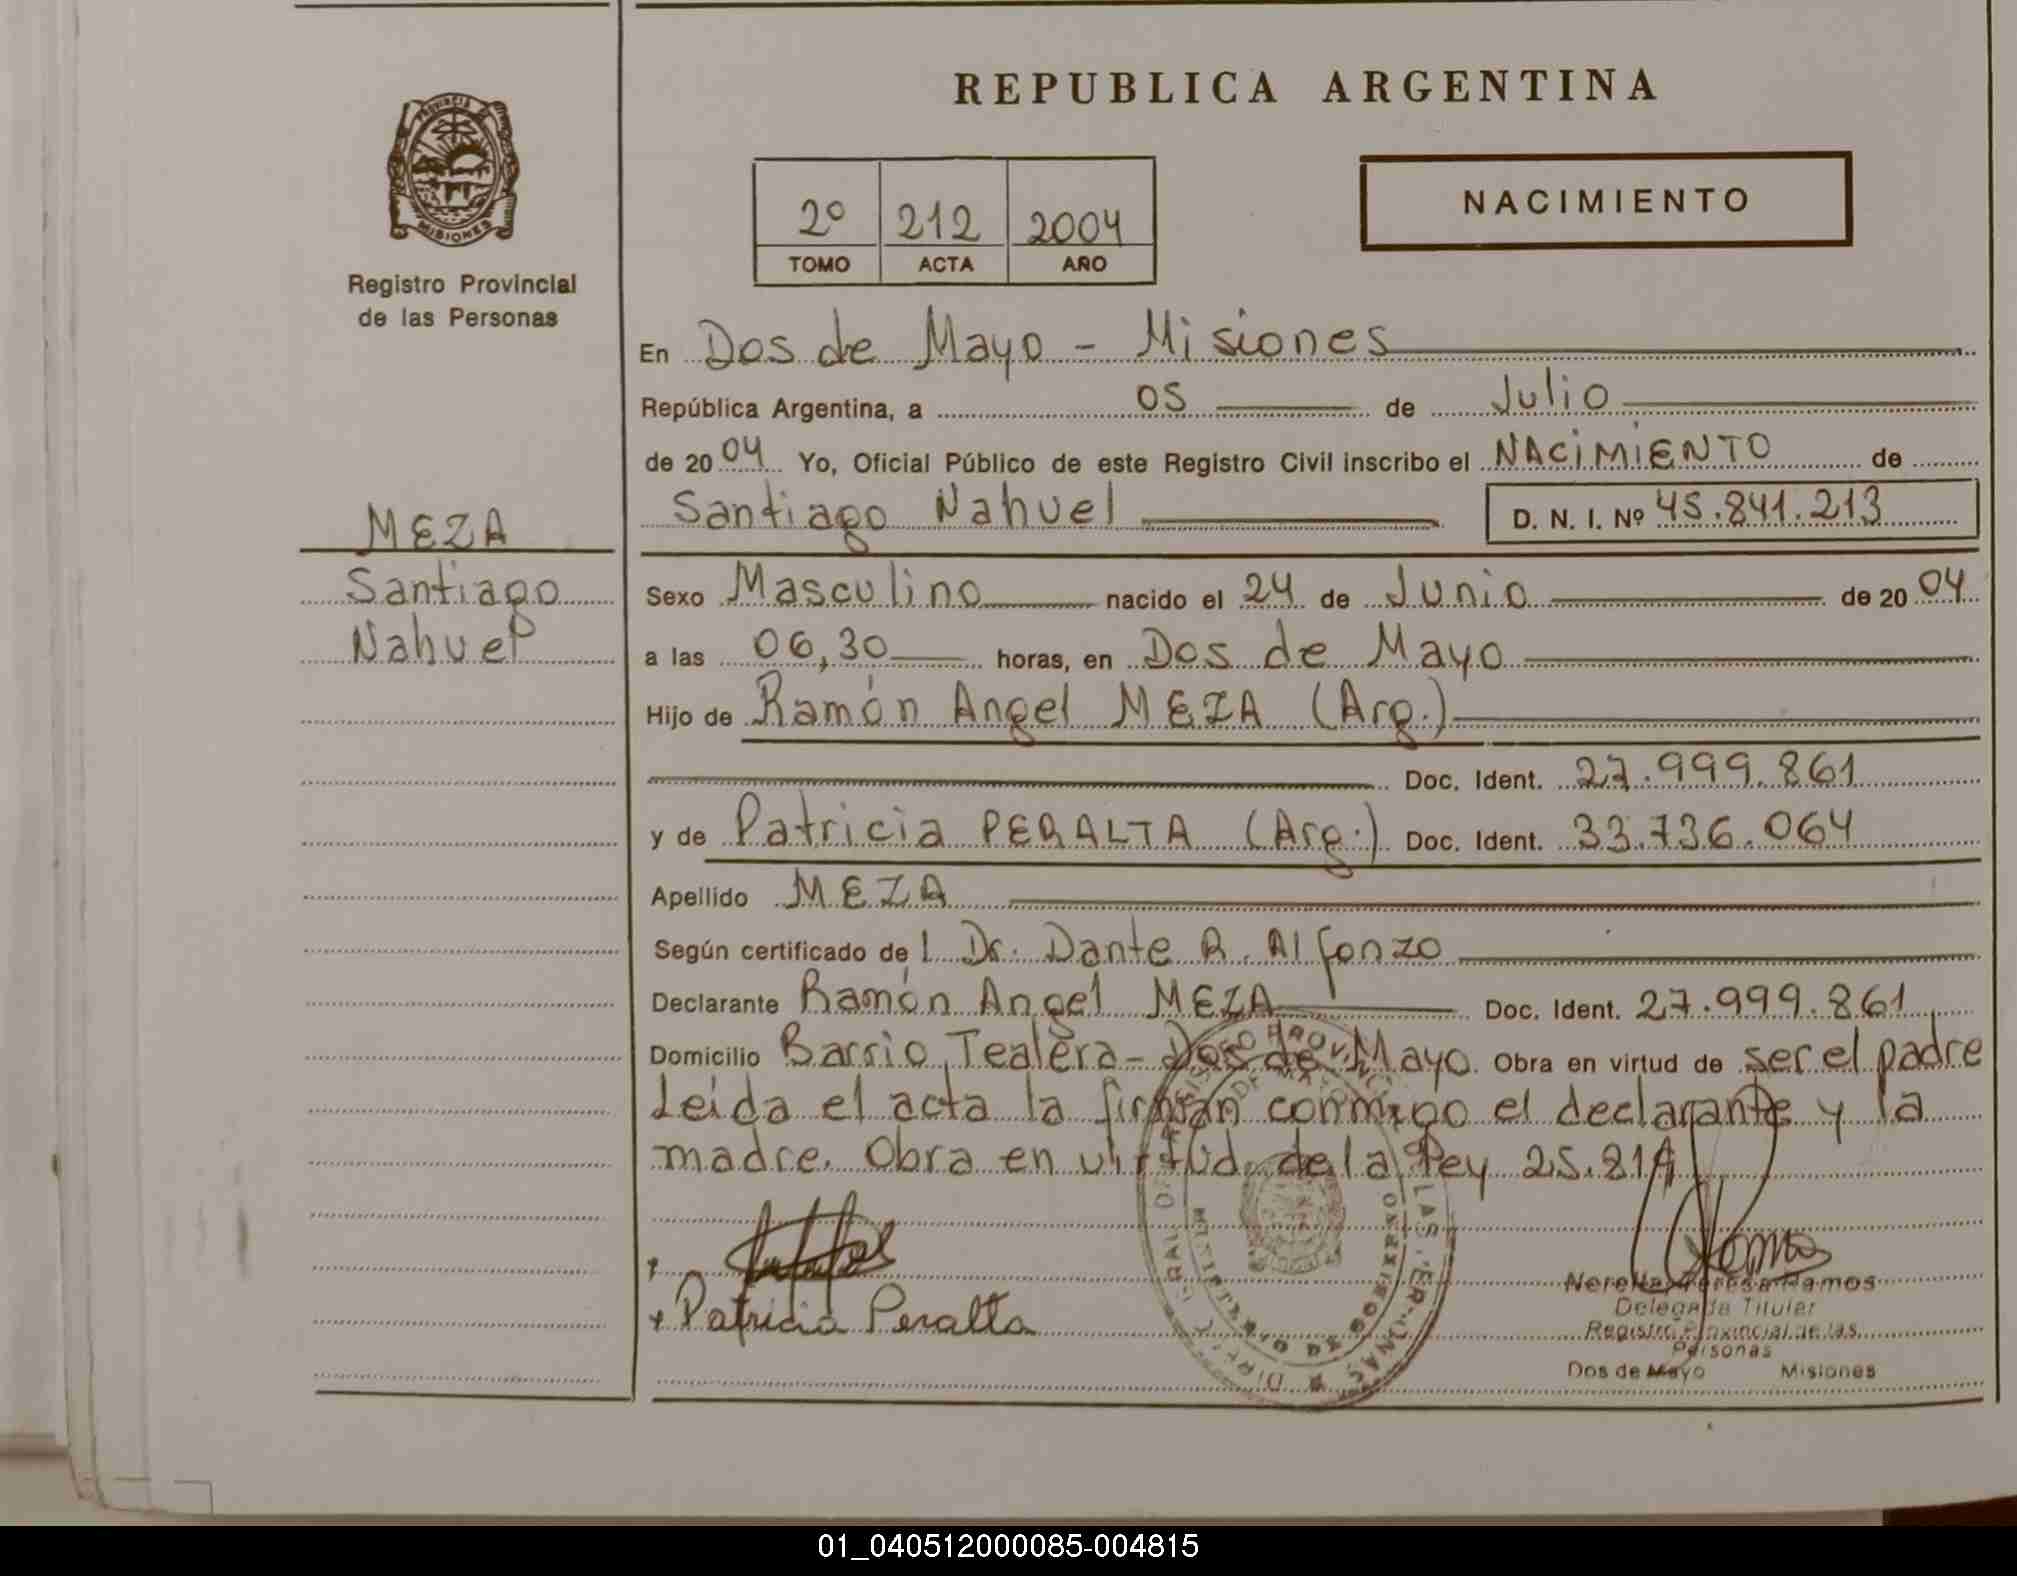 REPUBLICA ARGENTINA
PROVINCIA
MISIONES
Registro Provincial
de las Personas
2º 212 2004
TOMO ACTA AÑO
NACIMIENTO
En Dos de Mayo - Misiones
República Argentina, a 05 de Julio
de 2004 Yo, Oficial Público de este Registro Civil inscribo el NACIMIENTO de
Santiago Nahuel D. N. I. Nº 45.841.213
MEZA
Santiago
Nahuel
Sexo Masculino nacido el 24 de Junio de 2004
a las 06,30 horas, en Dos de Mayo
Hijo de Ramón Angel MEZA (Arg.)
Doc. Ident. 27.999.861
y de Patricia PERALTA (Arg.) Doc. Ident. 33.736.064
Apellido MEZA
Según certificado de l Dr. Dante R. Alfonzo
Declarante Ramón Angel MEZA Doc. Ident. 27.999.861
Domicilio Barrio Tealera - Dos de Mayo Obra en virtud de ser el padre
Leida el acta la firman conmigo el declarante y la
madre. Obra en virtud de la ley 25.819
Patricia Peralta
Ramos
Nerella Teresa Ramos
Delegada Titular
Registro Provincial de las
Personas
Dos de Mayo Misiones
01_040512000085-004815